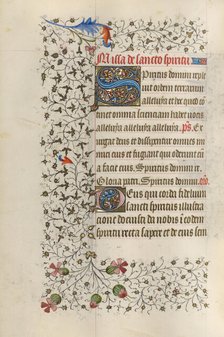 Missa de sancto spiritu
Spiritus domini reple
uit orbem terrarum
alleluya et hoc quod co
ntinet omnia scientiam habet vocis
alleluya alleluya alleluya. ps. Ex
urgat deus et dissipentur inimi
ci eius et fugiant qui oderunt eum
a facie eius. Spiritus domini.
Gloria patri. Spiritus domini.
Deus qui corda fidelium
sancti spiritus illustra
cione docuisti da nobis in eodem
spiritu recta sapere et de eius sem